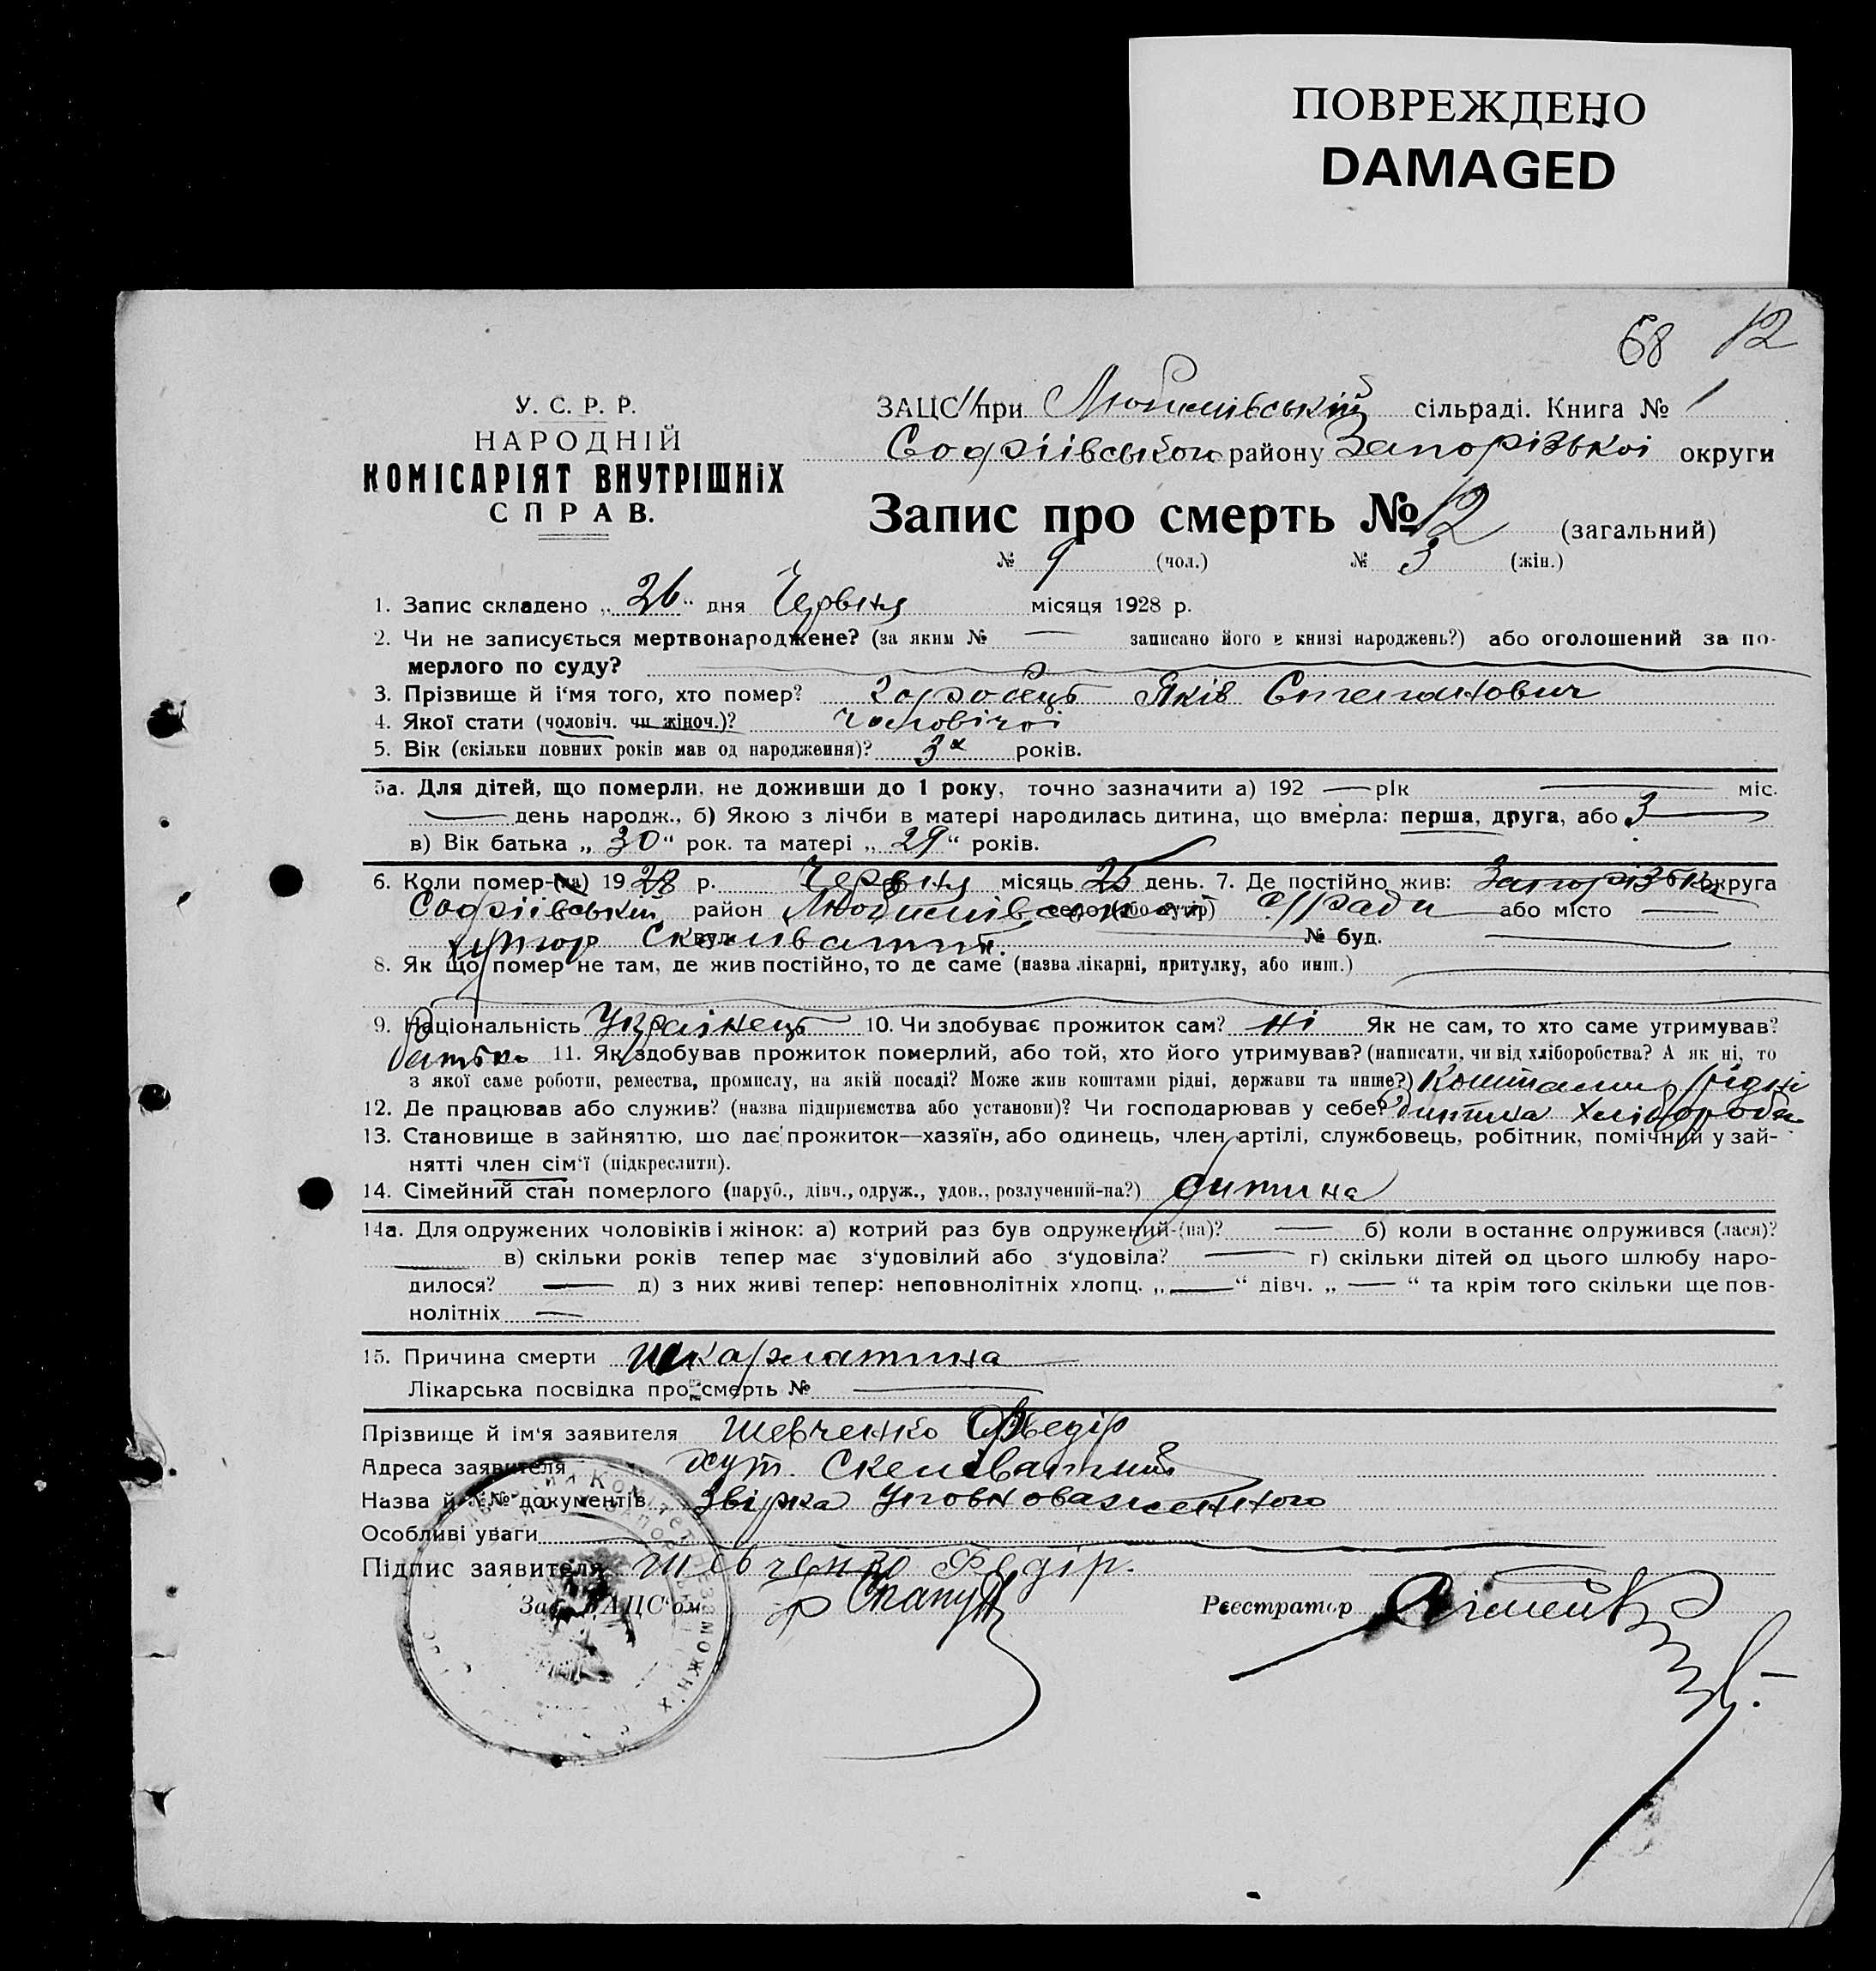 ПОВРЕЖДЕНО
DAMAGED
68 12
У. С. Р. Р.
НАРОДНІЙ
КОМІСАРІЯТ ВНУТРІШНІХ
СПРАВ.
ЗАЦС при Любимівській сільраді. Книга № 1
Софіївського району Запорізької округи
Запис про смерть № 12 (загальний)
№ 9 (чол.) № 3 (жін.)
1. Запис складено „26“ дня Червня місяця 1928 р.
2. Чи не записується мертвонароджене? (за яким № — записано його в книзі народжень?) або оголошений за по-
мерлого по суду?
3. Прізвище й і'мя того, хто помер? Яків Степанович
4. Якої стати (чоловіч. чи жіноч.)? чоловічої
5. Вік (скільки повних років мав од народження)? 3х років.
5а. Для дітей, що померли, не доживши до 1 року, точно зазначити а) 192 — рік — міс.
— день народж., б) Якою з лічби в матері народилась дитина, що вмерла: перша, друга, або 3
в) Вік батька „30“ рок. та матері „29“ років.
6. Коли помер-(ла) 1928 р. Червня місяць 25 день. 7. Де постійно жив: Запорізька округа
Софіївський район Любимівської село (або хутір) с/ради або місто —
хутор Скелюватий вул. № буд. —
8. Як що помер не там, де жив постійно, то де саме (назва лікарні, притулку, або инш.)
9. Національність Українець 10. Чи здобуває прожиток сам? ні Як не сам, то хто саме утримував?
батько 11. Як здобував прожиток померлий, або той, хто його утримував? (написати, чи від хліборобства? А як ні, то
з якої саме роботи, ремества, промислу, на якій посаді? Може жив коштами рідні, держави та инше?) Коштами рідні
12. Де працював або служив? (назва підприємства або установи)? Чи господарював у себе? дитина хлібороба
13. Становище в зайняттю, що дає прожиток—хазяїн, або одинець, член артілі, службовець, робітник, помічний у зай-
нятті член сім'ї (підкреслити).
14. Сімейний стан померлого (паруб., дівч., одруж., удов., розлучений-на?) дитина
14а. Для одружених чоловіків і жінок: а) котрий раз був одружений-(на)? — б) коли востаннє одружився (лася)?
— в) скільки років тепер має з'удовілий або з'удовіла? — г) скільки дітей од цього шлюбу наро-
дилося? — д) з них живі тепер: неповнолітніх хлопц. „—“ дівч. „—“ та крім того скільки ще пов-
нолітніх —
15. Причина смерти шкарлатина
Лікарська посвідка про смерть № —
Прізвище й ім'я заявителя Шевченко Федір
Адреса заявителя хут. Скелюватий
Назва й №№ документів Звірка Уповноваженного
Особливі уваги
Підпис заявителя Шевченко Федір.
Зав. ЗАЦС'ом Реєстратор
Комітет Незаможних